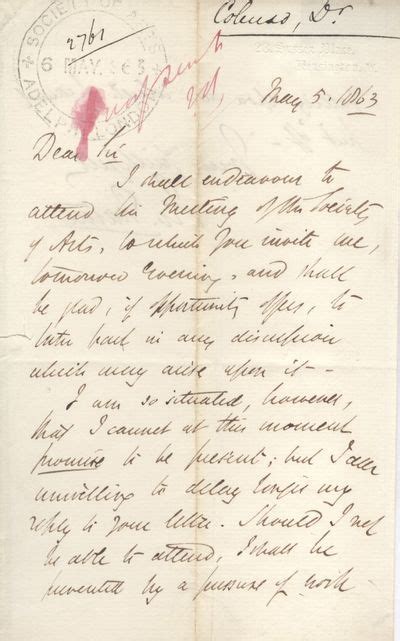 Colenso, Dr.
SOCIETY OF ARTS
2761
6 MAY 63
ADELPHI LONDON
23, Sussex Place,
Kensington, W.
May 5. 1863
Dear Sir
I shall endeavour to
attend the Meeting of the Society
of Arts, to which you invite me,
tomorrow evening, and shall
be glad, if opportunity offers, to
take part in any discussion
which may arise upon it -
I am so situated, however,
that I cannot at this moment
promise to be present; but I am
unwilling to delay longer my
reply to your letter. Should I not
be able to attend, I shall be
prevented by a pressure of work